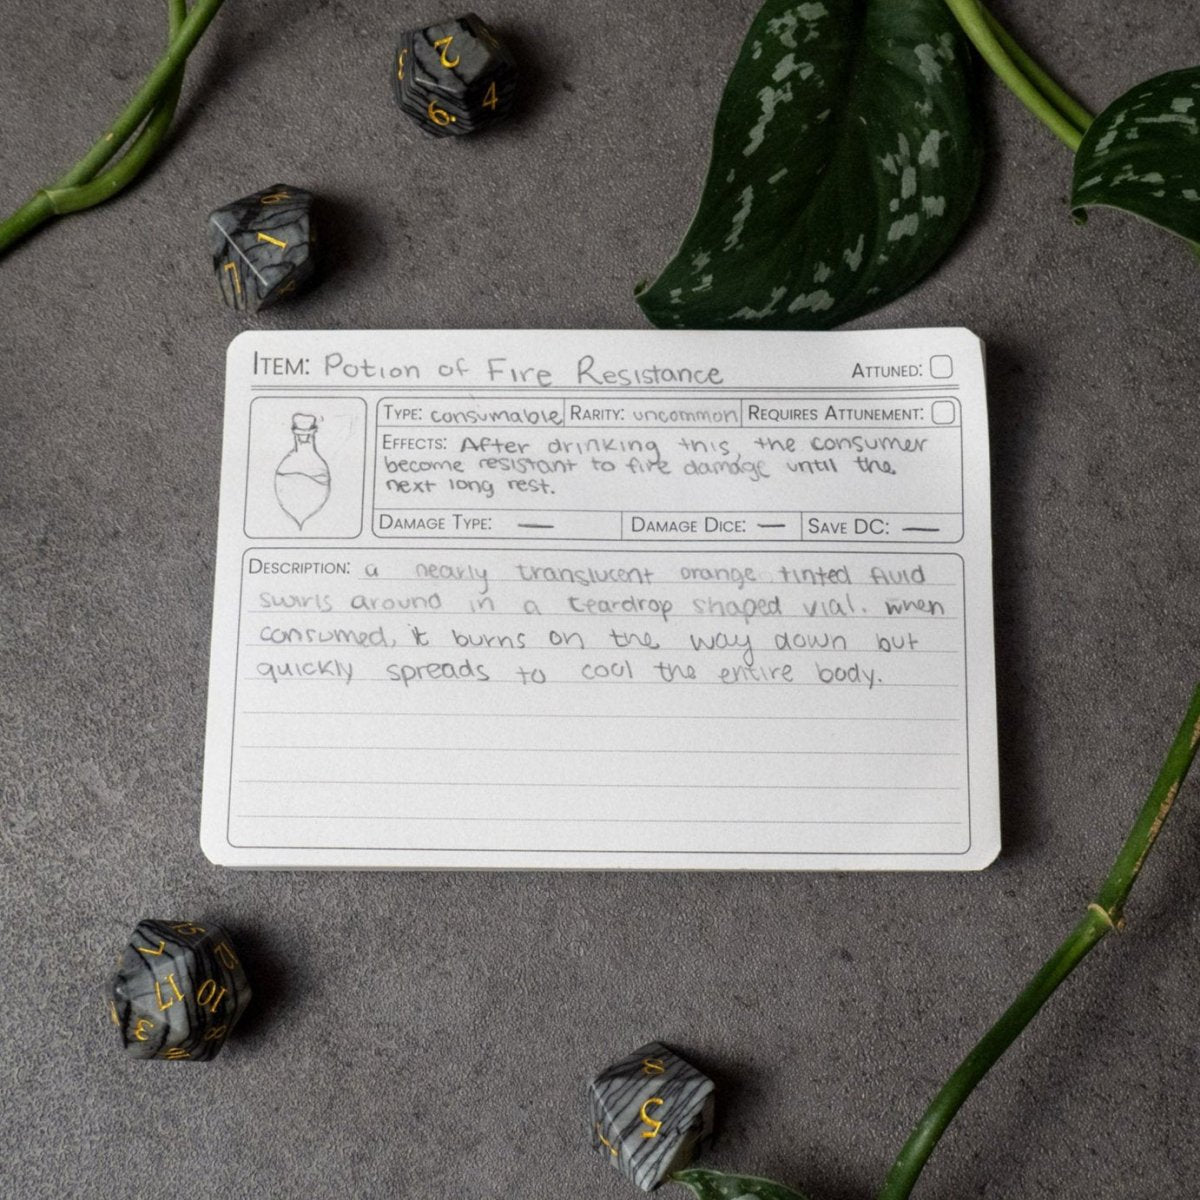 2
6.
4
1
ITEM: Potion of Fire Resistance ATTUNED:
TYPE: consumable RARITY: uncommon REQUIRES ATTUNEMENT:
EFFECTS: After drinking this, the consumer
become resistant to fire damage until the
next long rest.
DAMAGE TYPE: — DAMAGE DICE: — SAVE DC: —
DESCRIPTION: a nearly translucent orange tinted fluid
swirls around in a teardrop shaped vial. when
consumed, it burns on the way down but
quickly spreads to cool the entire body.
15
7
12
17
10
3
8
5